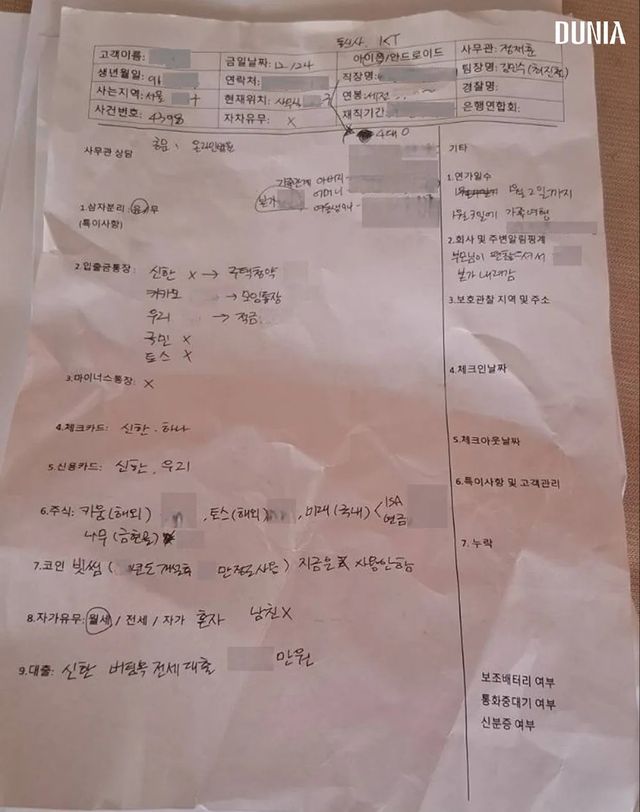 DUNIA
통신사 KT
고객이름:
금일날짜: 12/24
아이폰/안드로이드
사무관: 정재훈
생년월일: 96
연락처:
직장명:
팀장명: 김민수(최진건)
사는지역: 서울
현재위치:
연봉: 세전
경찰명:
사건번호: 4398
자차유무: X
재직기간:
은행연합회:
4대 O
사무관 상담
기타
가족관계 아버지
어머니
본가
1.삼자분리 유/무
(특이사항)
1.연가일수
1월 2일까지
1월 3일에 가족여행
2.회사 및 주변알림핑계
부모님이
본가 내려감
2.입출금통장: 신한 X → 주택청약
카카오 → 모임통장
우리 → 적금
국민 X
토스 X
3.보호관찰 지역 및 주소
3.마이너스통장: X
4.체크인날짜
4.체크카드: 신한. 하나
5.체크아웃날짜
5.신용카드: 신한, 우리
6.특이사항 및 고객관리
6.주식: 키움(해외) , 토스(해외) , 미래(국내) < ISA
연금
나무
7. 누락
7.코인 빗썸 ( ) 지금은 사용안함
8.자가유무: 월세 / 전세 / 자가 혼자 남친X
9.대출: 신한 버팀목 전세대출 만원
보조배터리 여부
통화중대기 여부
신분증 여부